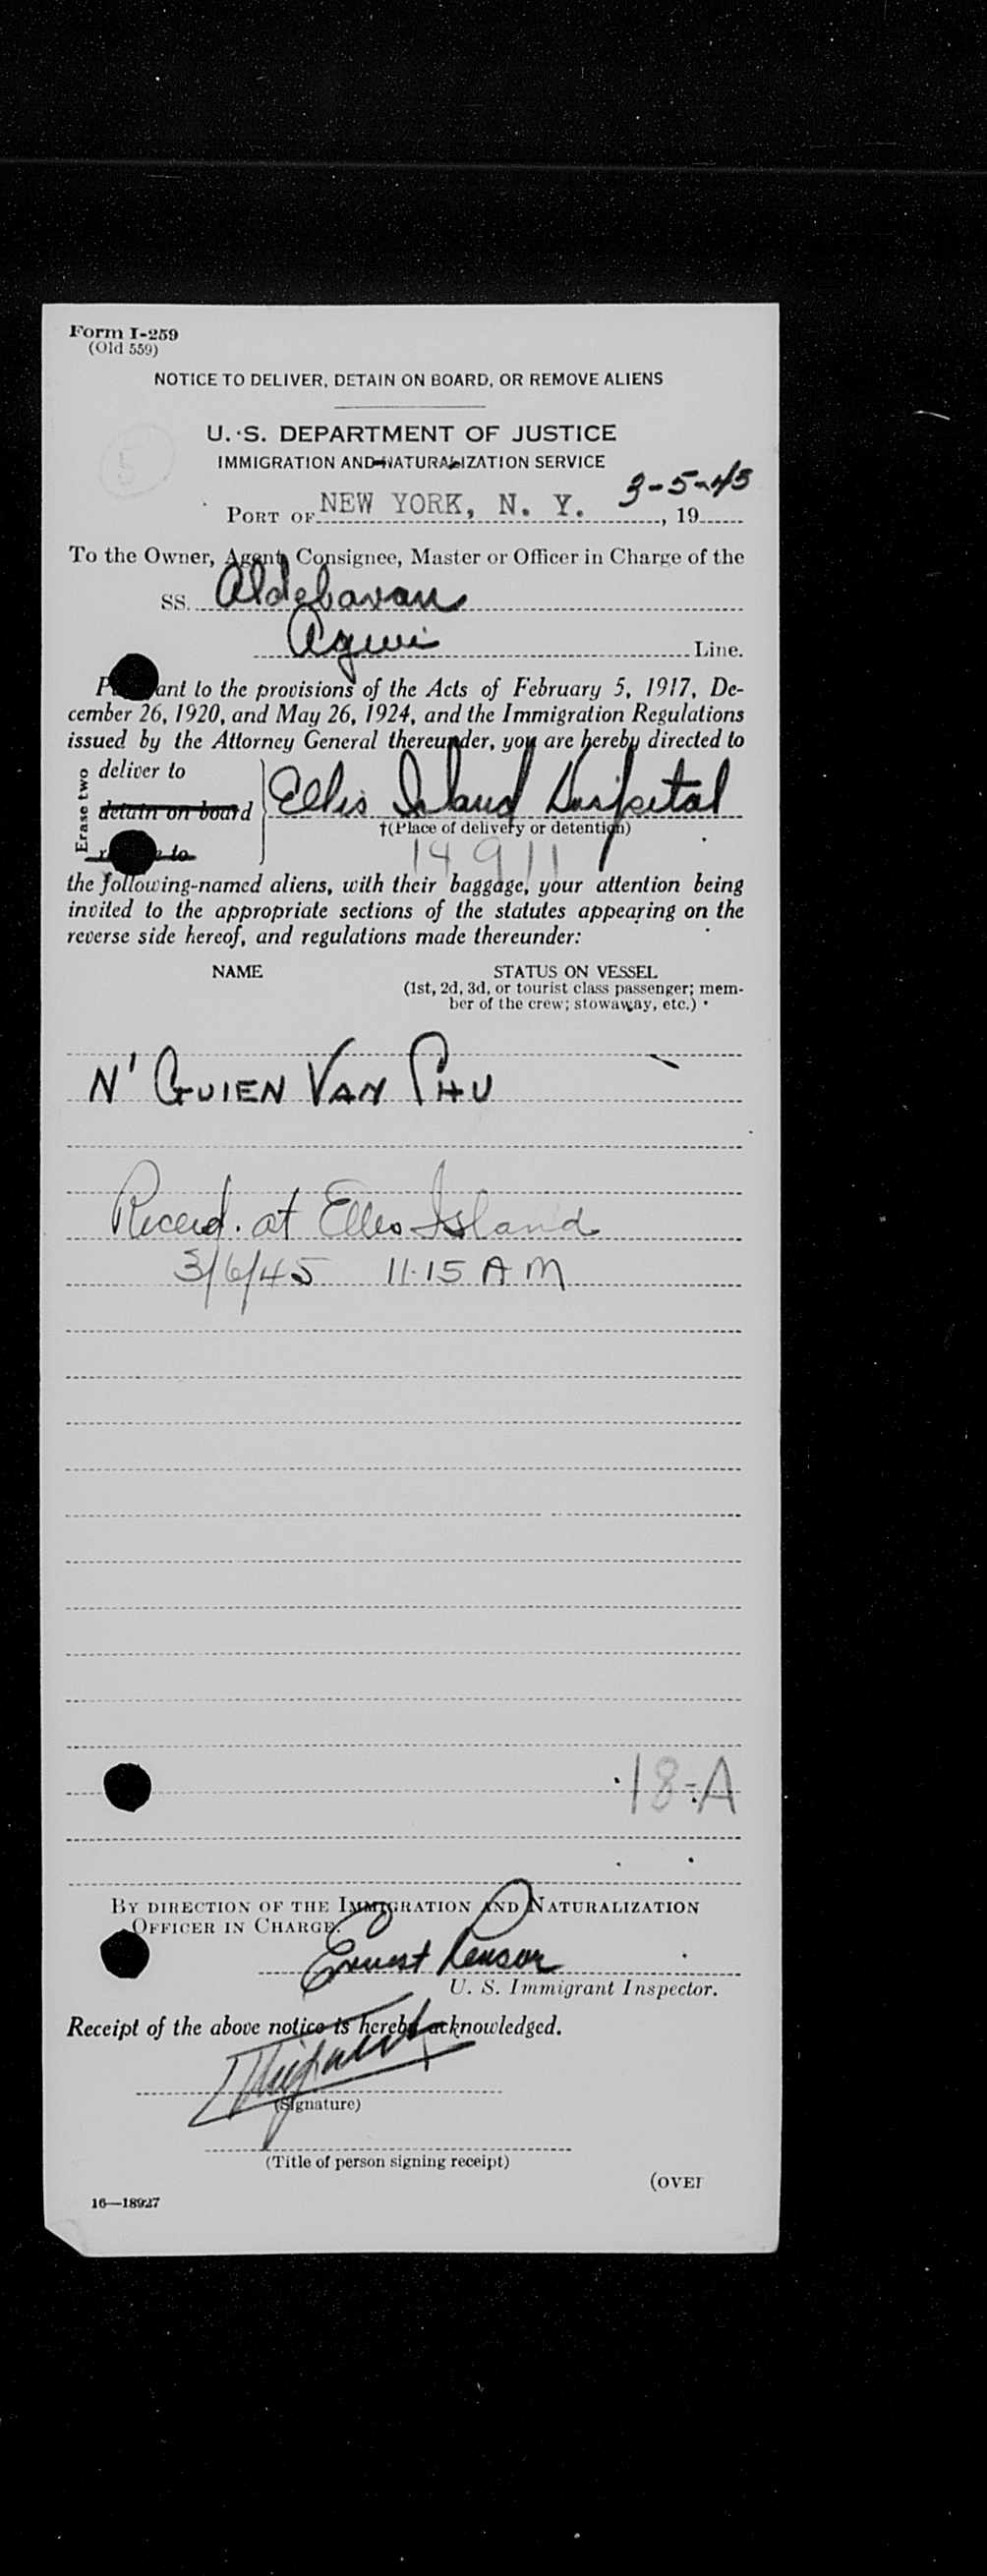 Form I-259
(Old 559)
NOTICE TO DELIVER, DETAIN ON BOARD, OR REMOVE ALIENS
U. S. DEPARTMENT OF JUSTICE
IMMIGRATION AND NATURALIZATION SERVICE
5
PORT OF NEW YORK, N. Y. 3-5-45, 19
To the Owner, Agent, Consignee, Master or Officer in Charge of the
SS. Aldebaran
Agwi Line.
ant to the provisions of the Acts of February 5, 1917, De-
cember 26, 1920, and May 26, 1924, and the Immigration Regulations
issued by the Attorney General thereunder, you are hereby directed to
Erase two
deliver to
detain on board
to
Ellis Island Hospital
†(Place of delivery or detention)
14911
the following-named aliens, with their baggage, your attention being
invited to the appropriate sections of the statutes appearing on the
reverse side hereof, and regulations made thereunder:
NAME STATUS ON VESSEL
(1st, 2d, 3d, or tourist class passenger; mem-
ber of the crew; stowaway, etc.)
N' GUIEN VAN PHU
Recevd. at Ellis Island
3/6/45 11.15 A M
18-A
BY DIRECTION OF THE IMMIGRATION AND NATURALIZATION
OFFICER IN CHARGE.
Ernest
U. S. Immigrant Inspector.
Receipt of the above notice is hereby acknowledged.
(Signature)
(Title of person signing receipt)
(OVER
16—18927